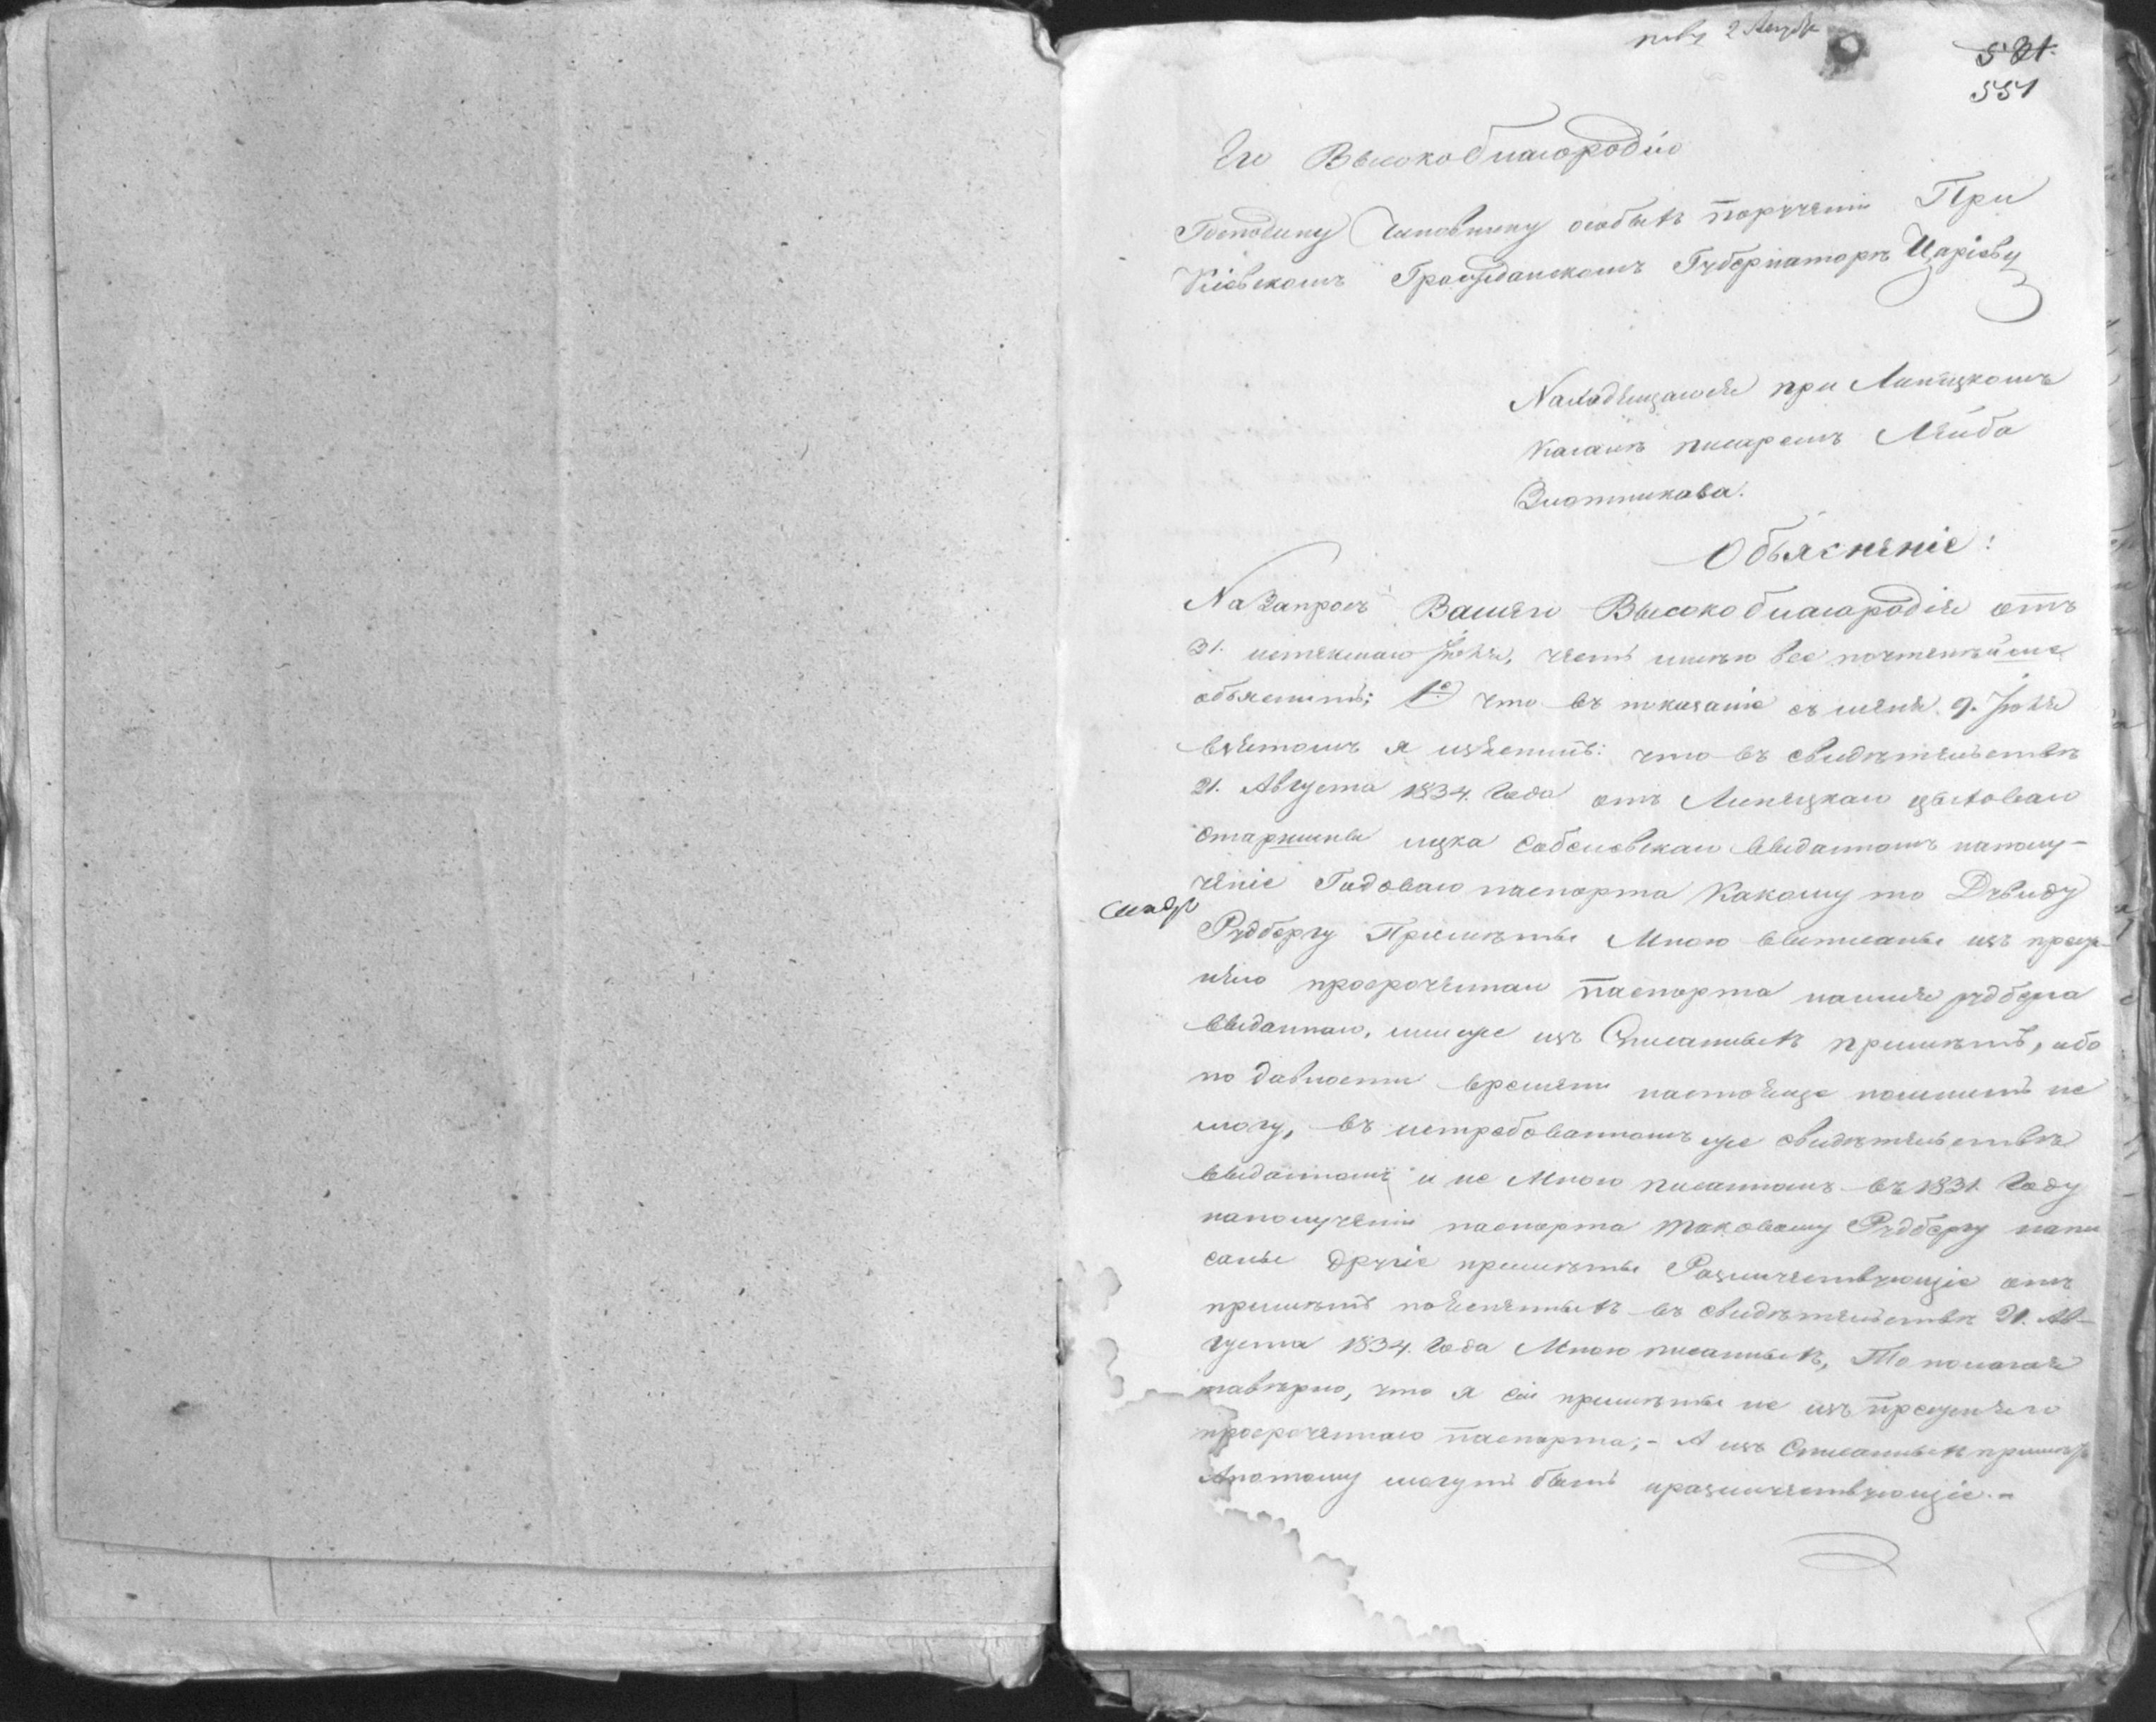 2 Августа
521.
551
Его Высокоблагородию
Господину Чиновнику особыхъ порученіи При
Кіевскомъ Гражданскомъ Губернаторѣ Царіеву
Находящагося при Липецкомъ
кагалѣ писаремъ Лейба
Злотникова.
Объясненіе:
На Запросъ Вашего Высокоблагородія отъ
31. истекшаго Іюля, честь имѣю все почтенѣйше
объяснить; 1е что въ показаніе съ меня 9. Іюля
взятомъ я изяснилъ: что въ свидѣтельствѣ
21. Августа 1834. Года отъ Липецкаго цѣховаго
старшины ицка Соболевскаго выданномъ наполу-
ченіе Годоваго паспорта Какому то Давиду
Рудбергу Примѣты Мною выписаны изъ преж-
няго просроченнаго паспорта наимя рудберга
выданнаго, или же изъ Списанныхъ примѣтъ, ибо
по давности времяни настояще помнить не
могу, въ истребованномъ же свидѣтельствѣ
выданномъ и не Мною писанномъ въ 1831. Году
наполучении паспорта таковому Рудбергу напи
саны другіе примѣты Различествующіе отъ
примѣтъ поясненныхъ въ свидѣтельствѣ 21. Ав-
густа 1834. Года Мною писанныхъ, То полагая
навѣрно, что я сіи примѣты не изъ прежняго
просроченнаго паспорта; - А изъ Списанныхъ примѣтъ
Апотому могутъ быть иразличествующіе. -